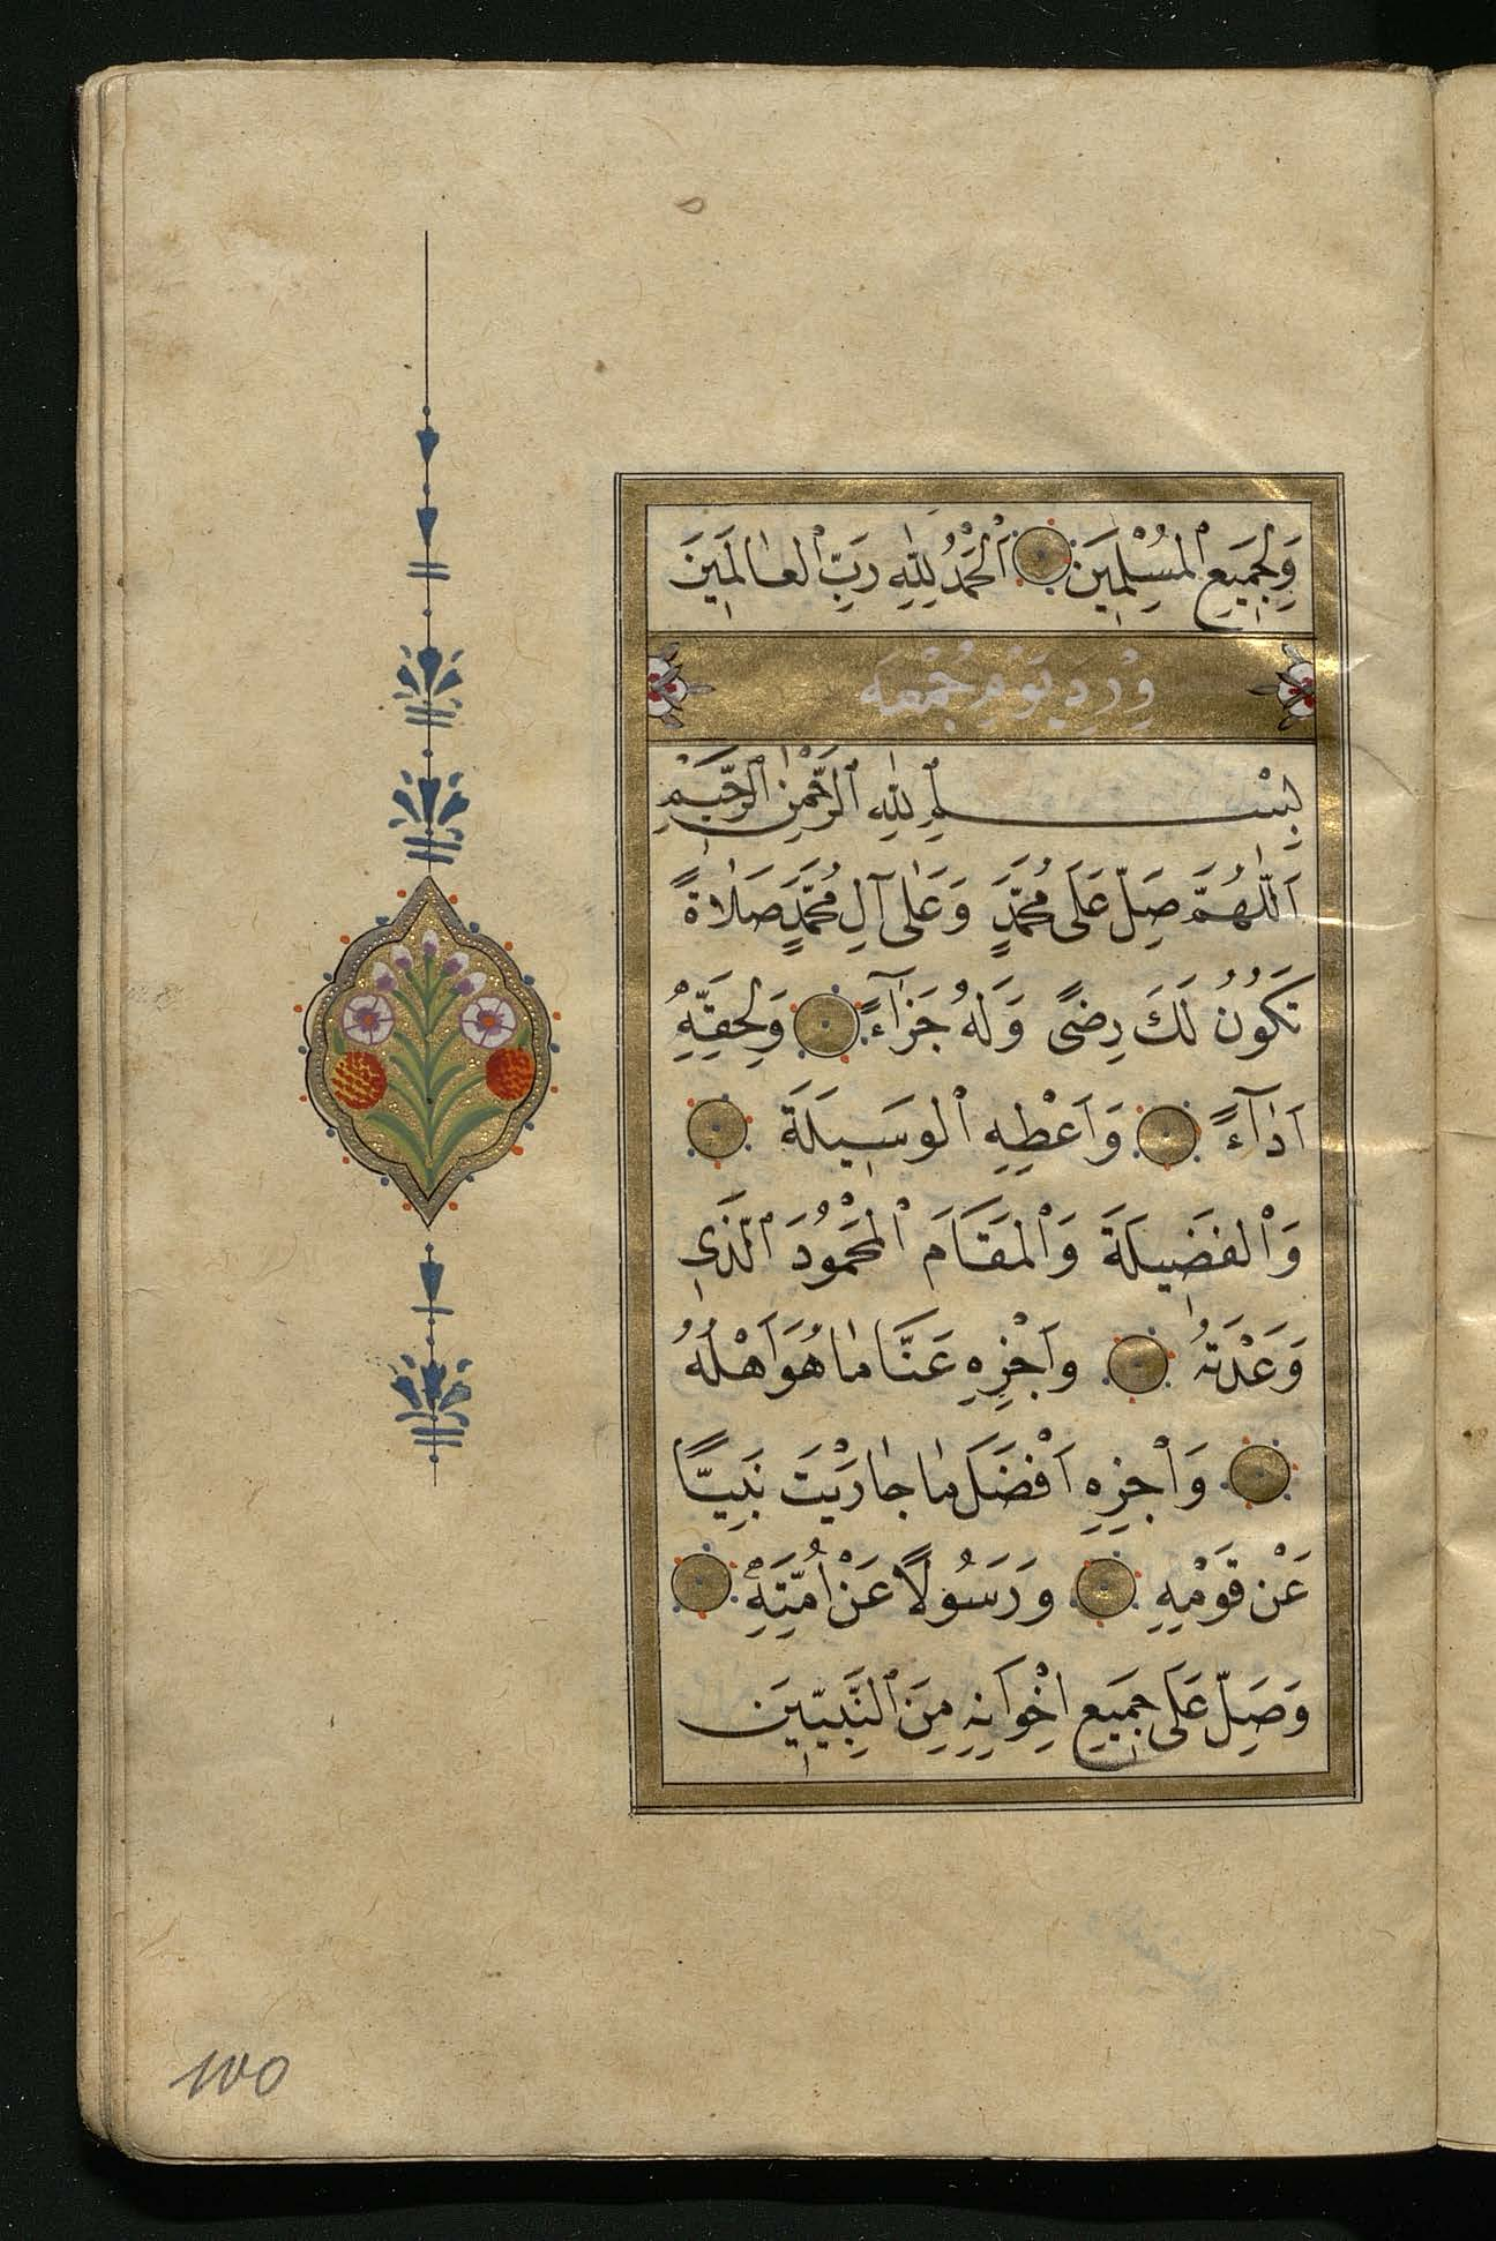 وَلِجَمِيعِ الْمُسْلِمِينَ اَلْحَمْدُ لِلّٰهِ رَبِّ الْعٰالَمِينَ
وِرْدِ يَوْمِ جُمْعَه
بِسْمِ اللّٰهِ الرَّحْمٰنِ الرَّحِيمِ
اَللّٰهُمَّ صَلِّ عَلَى مُحَمَّدٍ وَعَلٰى آلِ مُحَمَّدٍ صَلٰاةً
تَكُونُ لَكَ رِضًى وَلَهُ جَزٰآءً وَلِحَقِّهِ
اَدٰآءً وَاَعْطِهِ الْوَسِيلَةَ
وَالْفَضِيلَةَ وَالْمَقَامَ الْمَحْمُودَ الَّذِي
وَعَدْتَهُ واَجْزِهِ عَنَّا مٰا هُوَ اَهْلُهُ
وَاْجْزِهِ اَفْضَلَ مٰا جٰازَيْتَ نَبِيًّا
عَنْ قَوْمِهِ وَرَسُولًا عَنْ اُمَّتِهِ
وَصَلِّ عَلَى جَمِيعِ اِخْوَانِهِ مِنَ النَّبِيِّينَ
100